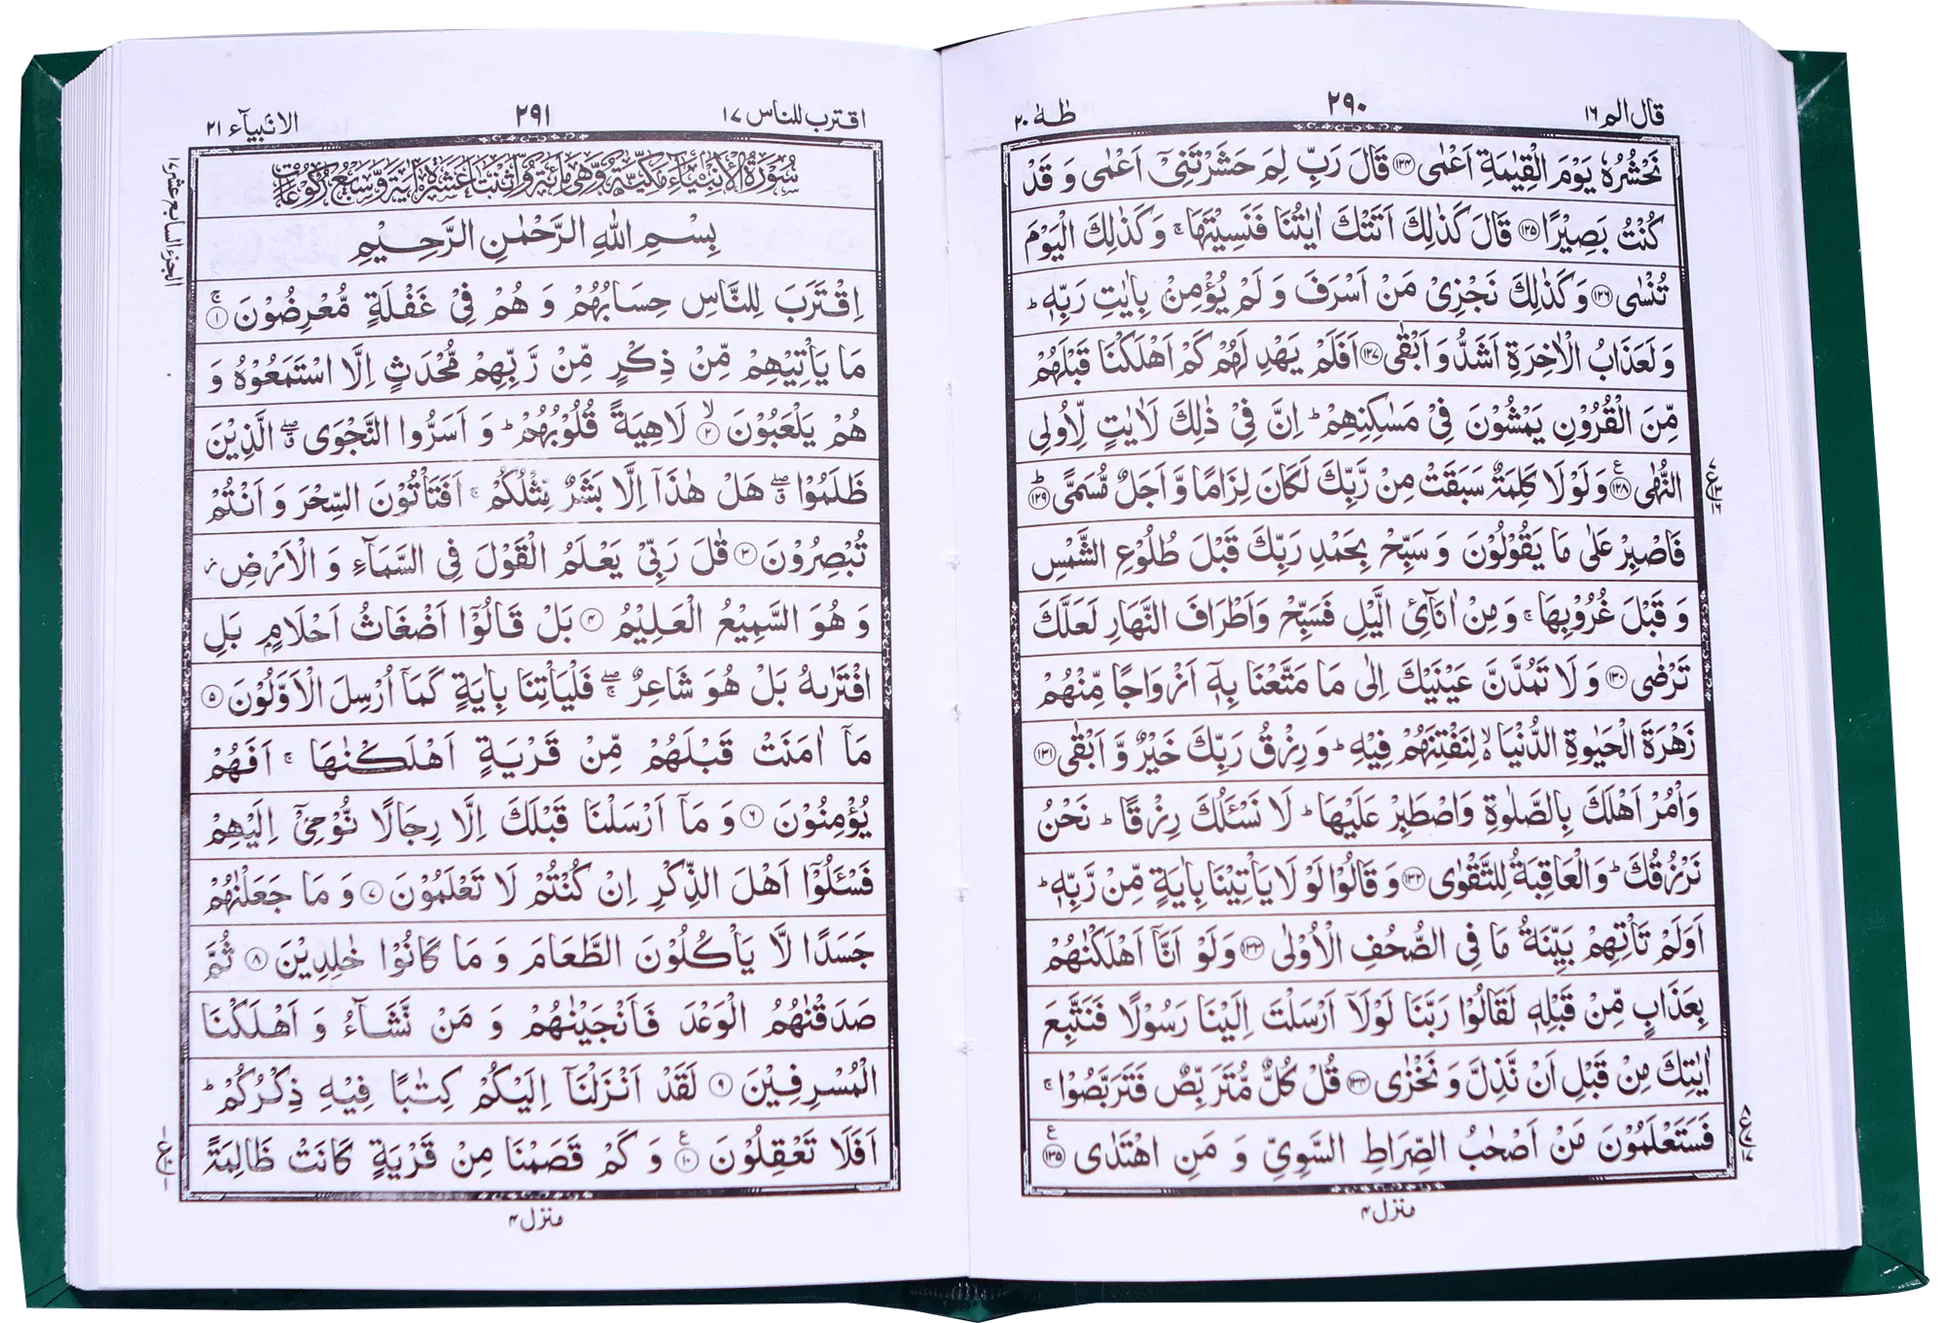 قال الم ١٦
٢٩٠
طٰهٰ ٢٠
نَحْشُرُهٗ يَوْمَ الْقِيٰمَةِ اَعْمٰى ﴿١٢٤﴾ قَالَ رَبِّ لِمَ حَشَرْتَنِيْۤ اَعْمٰى وَ قَدْ
كُنْتُ بَصِيْرًا ﴿١٢٥﴾ قَالَ كَذٰلِكَ اَتَتْكَ اٰيٰتُنَا فَنَسِيْتَهَا ۚ وَ كَذٰلِكَ الْيَوْمَ
تُنْسٰى ﴿١٢٦﴾ وَ كَذٰلِكَ نَجْزِيْ مَنْ اَسْرَفَ وَ لَمْ يُؤْمِنْۢ بِاٰيٰتِ رَبِّهٖ ؕ
وَ لَعَذَابُ الْاٰخِرَةِ اَشَدُّ وَ اَبْقٰى ﴿١٢٧﴾ اَفَلَمْ يَهْدِ لَهُمْ كَمْ اَهْلَكْنَا قَبْلَهُمْ
مِّنَ الْقُرُوْنِ يَمْشُوْنَ فِيْ مَسٰكِنِهِمْ ؕ اِنَّ فِيْ ذٰلِكَ لَاٰيٰتٍ لِّاُولِي
النُّهٰى ﴿١٢٨﴾ وَ لَوْ لَا كَلِمَةٌ سَبَقَتْ مِنْ رَّبِّكَ لَكَانَ لِزَامًا وَّ اَجَلٌ مُّسَمًّى ﴿١٢٩﴾
فَاصْبِرْ عَلٰى مَا يَقُوْلُوْنَ وَ سَبِّحْ بِحَمْدِ رَبِّكَ قَبْلَ طُلُوْعِ الشَّمْسِ
وَ قَبْلَ غُرُوْبِهَا ۚ وَ مِنْ اٰنَآئِ الَّيْلِ فَسَبِّحْ وَ اَطْرَافَ النَّهَارِ لَعَلَّكَ
تَرْضٰى ﴿١٣٠﴾ وَ لَا تَمُدَّنَّ عَيْنَيْكَ اِلٰى مَا مَتَّعْنَا بِهٖۤ اَزْوَاجًا مِّنْهُمْ
زَهْرَةَ الْحَيٰوةِ الدُّنْيَا ۙ لِنَفْتِنَهُمْ فِيْهِ ؕ وَ رِزْقُ رَبِّكَ خَيْرٌ وَّ اَبْقٰى ﴿١٣١﴾
وَ اْمُرْ اَهْلَكَ بِالصَّلٰوةِ وَ اصْطَبِرْ عَلَيْهَا ؕ لَا نَسْـَٔلُكَ رِزْقًا ؕ نَحْنُ
نَرْزُقُكَ ؕ وَ الْعَاقِبَةُ لِلتَّقْوٰى ﴿١٣٢﴾ وَ قَالُوْا لَوْ لَا يَاْتِيْنَا بِاٰيَةٍ مِّنْ رَّبِّهٖ ؕ
اَوَلَمْ تَاْتِهِمْ بَيِّنَةُ مَا فِي الصُّحُفِ الْاُوْلٰى ﴿١٣٣﴾ وَ لَوْ اَنَّاۤ اَهْلَكْنٰهُمْ
بِعَذَابٍ مِّنْ قَبْلِهٖ لَقَالُوْا رَبَّنَا لَوْ لَاۤ اَرْسَلْتَ اِلَيْنَا رَسُوْلًا فَنَتَّبِعَ
اٰيٰتِكَ مِنْ قَبْلِ اَنْ نَّذِلَّ وَ نَخْزٰى ﴿١٣٤﴾ قُلْ كُلٌّ مُّتَرَبِّصٌ فَتَرَبَّصُوْا ۚ
فَسَتَعْلَمُوْنَ مَنْ اَصْحٰبُ الصِّرَاطِ السَّوِيِّ وَ مَنِ اهْتَدٰى ﴿١٣٥﴾
منزل ٤
اقترب للناس ١٧
٢٩١
الانبيآء ٢١
الجزء السابع عشر
سُوْرَةُ الْاَنْۢبِيَآءِ مَكِّيَّةٌ وَّهِيَ مِائَةٌ وَّاثْنَتَا عَشْرَةَ اٰيَةً وَّسَبْعُ رُكُوْعَاتٍ
بِسْمِ اللّٰهِ الرَّحْمٰنِ الرَّحِيْمِ
اِقْتَرَبَ لِلنَّاسِ حِسَابُهُمْ وَ هُمْ فِيْ غَفْلَةٍ مُّعْرِضُوْنَ ۚ﴿١﴾
مَا يَاْتِيْهِمْ مِّنْ ذِكْرٍ مِّنْ رَّبِّهِمْ مُّحْدَثٍ اِلَّا اسْتَمَعُوْهُ وَ
هُمْ يَلْعَبُوْنَ ۙ﴿٢﴾ لَاهِيَةً قُلُوْبُهُمْ ؕ وَ اَسَرُّوا النَّجْوَى ۖۗ الَّذِيْنَ
ظَلَمُوْا ۖۗ هَلْ هٰذَاۤ اِلَّا بَشَرٌ مِّثْلُكُمْ ۚ اَفَتَاْتُوْنَ السِّحْرَ وَ اَنْتُمْ
تُبْصِرُوْنَ ﴿٣﴾ قٰلَ رَبِّيْ يَعْلَمُ الْقَوْلَ فِي السَّمَآءِ وَ الْاَرْضِ ز
وَ هُوَ السَّمِيْعُ الْعَلِيْمُ ﴿٤﴾ بَلْ قَالُوْۤا اَضْغَاثُ اَحْلَامٍۭ بَلِ
افْتَرٰىهُ بَلْ هُوَ شَاعِرٌ ۖۚ فَلْيَاْتِنَا بِاٰيَةٍ كَمَاۤ اُرْسِلَ الْاَوَّلُوْنَ ﴿٥﴾
مَاۤ اٰمَنَتْ قَبْلَهُمْ مِّنْ قَرْيَةٍ اَهْلَكْنٰهَا ۚ اَفَهُمْ
يُؤْمِنُوْنَ ﴿٦﴾ وَ مَاۤ اَرْسَلْنَا قَبْلَكَ اِلَّا رِجَالًا نُّوْحِيْۤ اِلَيْهِمْ
فَسْـَٔلُوْۤا اَهْلَ الذِّكْرِ اِنْ كُنْتُمْ لَا تَعْلَمُوْنَ ﴿٧﴾ وَ مَا جَعَلْنٰهُمْ
جَسَدًا لَّا يَاْكُلُوْنَ الطَّعَامَ وَ مَا كَانُوْا خٰلِدِيْنَ ﴿٨﴾ ثُمَّ
صَدَقْنٰهُمُ الْوَعْدَ فَاَنْجَيْنٰهُمْ وَ مَنْ نَّشَآءُ وَ اَهْلَكْنَا
الْمُسْرِفِيْنَ ﴿٩﴾ لَقَدْ اَنْزَلْنَاۤ اِلَيْكُمْ كِتٰبًا فِيْهِ ذِكْرُكُمْ ؕ
اَفَلَا تَعْقِلُوْنَ ﴿١٠﴾ وَ كَمْ قَصَمْنَا مِنْ قَرْيَةٍ كَانَتْ ظَالِمَةً
منزل ٤